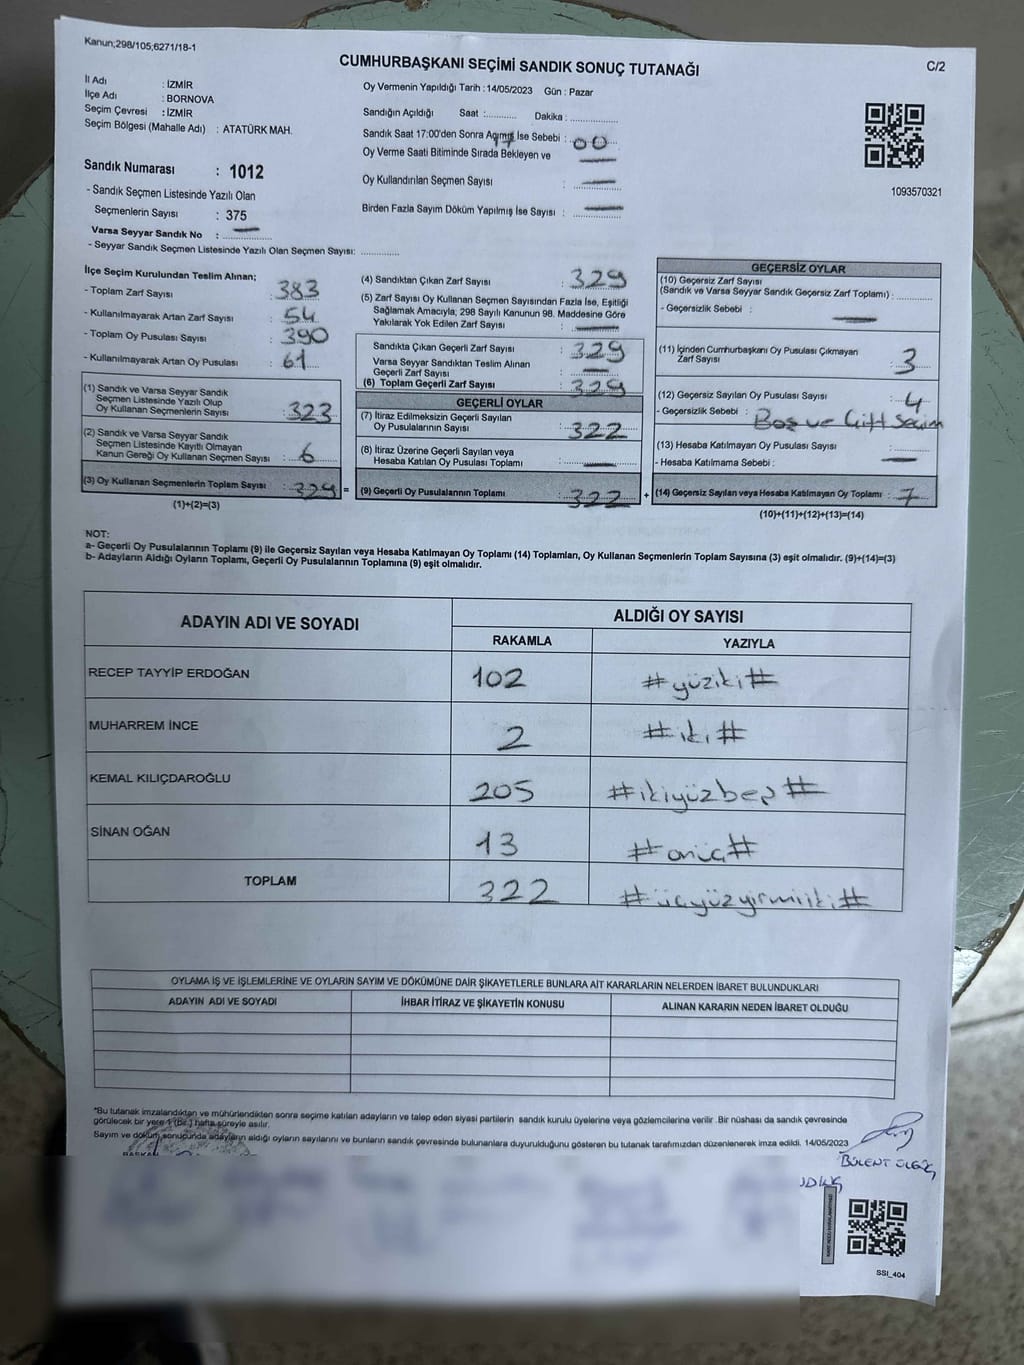 Kanun;298/105;6271/18-1
CUMHURBAŞKANI SEÇİMİ SANDIK SONUÇ TUTANAĞI
C/2
İl Adı : İZMİR
İlçe Adı : BORNOVA
Seçim Çevresi : İZMİR
Seçim Bölgesi (Mahalle Adı) : ATATÜRK MAH.
Sandık Numarası : 1012
- Sandık Seçmen Listesinde Yazılı Olan
Seçmenlerin Sayısı : 375
Varsa Seyyar Sandık No : —
- Seyyar Sandık Seçmen Listesinde Yazılı Olan Seçmen Sayısı: ............
Oy Vermenin Yapıldığı Tarih : 14/05/2023 Gün : Pazar
Sandığın Açıldığı Saat :.......... Dakika : ..............
Sandık Saat 17:00'den Sonra Açımış İse Sebebi :
17 00
Oy Verme Saati Bitiminde Sırada Bekleyen ve —
Oy Kullandırılan Seçmen Sayısı : —
Birden Fazla Sayım Döküm Yapılmış İse Sayısı : —
1093570321
İlçe Seçim Kurulundan Teslim Alınan;
- Toplam Zarf Sayısı : 383
- Kullanılmayarak Artan Zarf Sayısı : 54
- Toplam Oy Pusulası Sayısı : 390
- Kullanılmayarak Artan Oy Pusulası : 61
(1) Sandık ve Varsa Seyyar Sandık
Seçmen Listesinde Yazılı Olup
Oy Kullanan Seçmenlerin Sayısı : 323
(2) Sandık ve Varsa Seyyar Sandık
Seçmen Listesinde Kayıtlı Olmayan
Kanun Gereği Oy Kullanan Seçmen Sayısı : 6
(3) Oy Kullanan Seçmenlerin Toplam Sayısı : 329 =
(1)+(2)=(3)
(4) Sandıktan Çıkan Zarf Sayısı : 329
(5) Zarf Sayısı Oy Kullanan Seçmen Sayısından Fazla İse, Eşitliği
Sağlamak Amacıyla; 298 Sayılı Kanunun 98. Maddesine Göre
Yakılarak Yok Edilen Zarf Sayısı : —
Sandıkta Çıkan Geçerli Zarf Sayısı : 329
Varsa Seyyar Sandıktan Teslim Alınan
Geçerli Zarf Sayısı : —
(6) Toplam Geçerli Zarf Sayısı : 329
GEÇERLİ OYLAR
(7) İtiraz Edilmeksizin Geçerli Sayılan
Oy Pusulalarının Sayısı : 322
(8) İtiraz Üzerine Geçerli Sayılan veya
Hesaba Katılan Oy Pusulası Toplamı : —
(9) Geçerli Oy Pusulalarının Toplamı : 322 +
GEÇERSİZ OYLAR
(10) Geçersiz Zarf Sayısı
(Sandık ve Varsa Seyyar Sandık Geçersiz Zarf Toplamı) : ............
- Geçersizlik Sebebi : —
(11) İçinden Cumhurbaşkanı Oy Pusulası Çıkmayan
Zarf Sayısı : 3
(12) Geçersiz Sayılan Oy Pusulası Sayısı : 4
- Geçersizlik Sebebi : Boş ve Çift Seçim
(13) Hesaba Katılmayan Oy Pusulası Sayısı : —
- Hesaba Katılmama Sebebi :
(14) Geçersiz Sayılan veya Hesaba Katılmayan Oy Toplamı : 7
(10)+(11)+(12)+(13)=(14)
NOT:
a- Geçerli Oy Pusulalarının Toplamı (9) ile Geçersiz Sayılan veya Hesaba Katılmayan Oy Toplamı (14) Toplamları, Oy Kullanan Seçmenlerin Toplam Sayısına (3) eşit olmalıdır. (9)+(14)=(3)
b- Adayların Aldığı Oyların Toplamı, Geçerli Oy Pusulalarının Toplamına (9) eşit olmalıdır.
ADAYIN ADI VE SOYADI ALDIĞI OY SAYISI
RAKAMLA YAZIYLA
RECEP TAYYİP ERDOĞAN 102 #yüziki#
MUHARREM İNCE 2 #iki#
KEMAL KILIÇDAROĞLU 205 #ikiyüzbeş#
SİNAN OĞAN 13 #onüç#
TOPLAM 322 #üçyüzyirmiiki#
OYLAMA İŞ VE İŞLEMLERİNE VE OYLARIN SAYIM VE DÖKÜMÜNE DAİR ŞİKAYETLERLE BUNLARA AİT KARARLARIN NELERDEN İBARET BULUNDUKLARI
ADAYIN ADI VE SOYADI İHBAR İTİRAZ VE ŞİKAYETİN KONUSU ALINAN KARARIN NEDEN İBARET OLDUĞU
*Bu tutanak imzalandıktan ve mühürlendikten sonra seçime katılan adayların ve talep eden siyasi partilerin sandık kurulu üyelerine veya gözlemcilerine verilir. Bir nüshası da sandık çevresinde
görülecek bir yere 1 (bir) hafta süreyle asılır.
Sayım ve döküm sonucunda adayların aldığı oyların sayılarını ve bunların sandık çevresinde bulunanlara duyurulduğunu gösteren bu tutanak tarafımızdan düzenlenerek imza edildi. 14/05/2023
BAŞKAN
BÜLENT
SSI_404